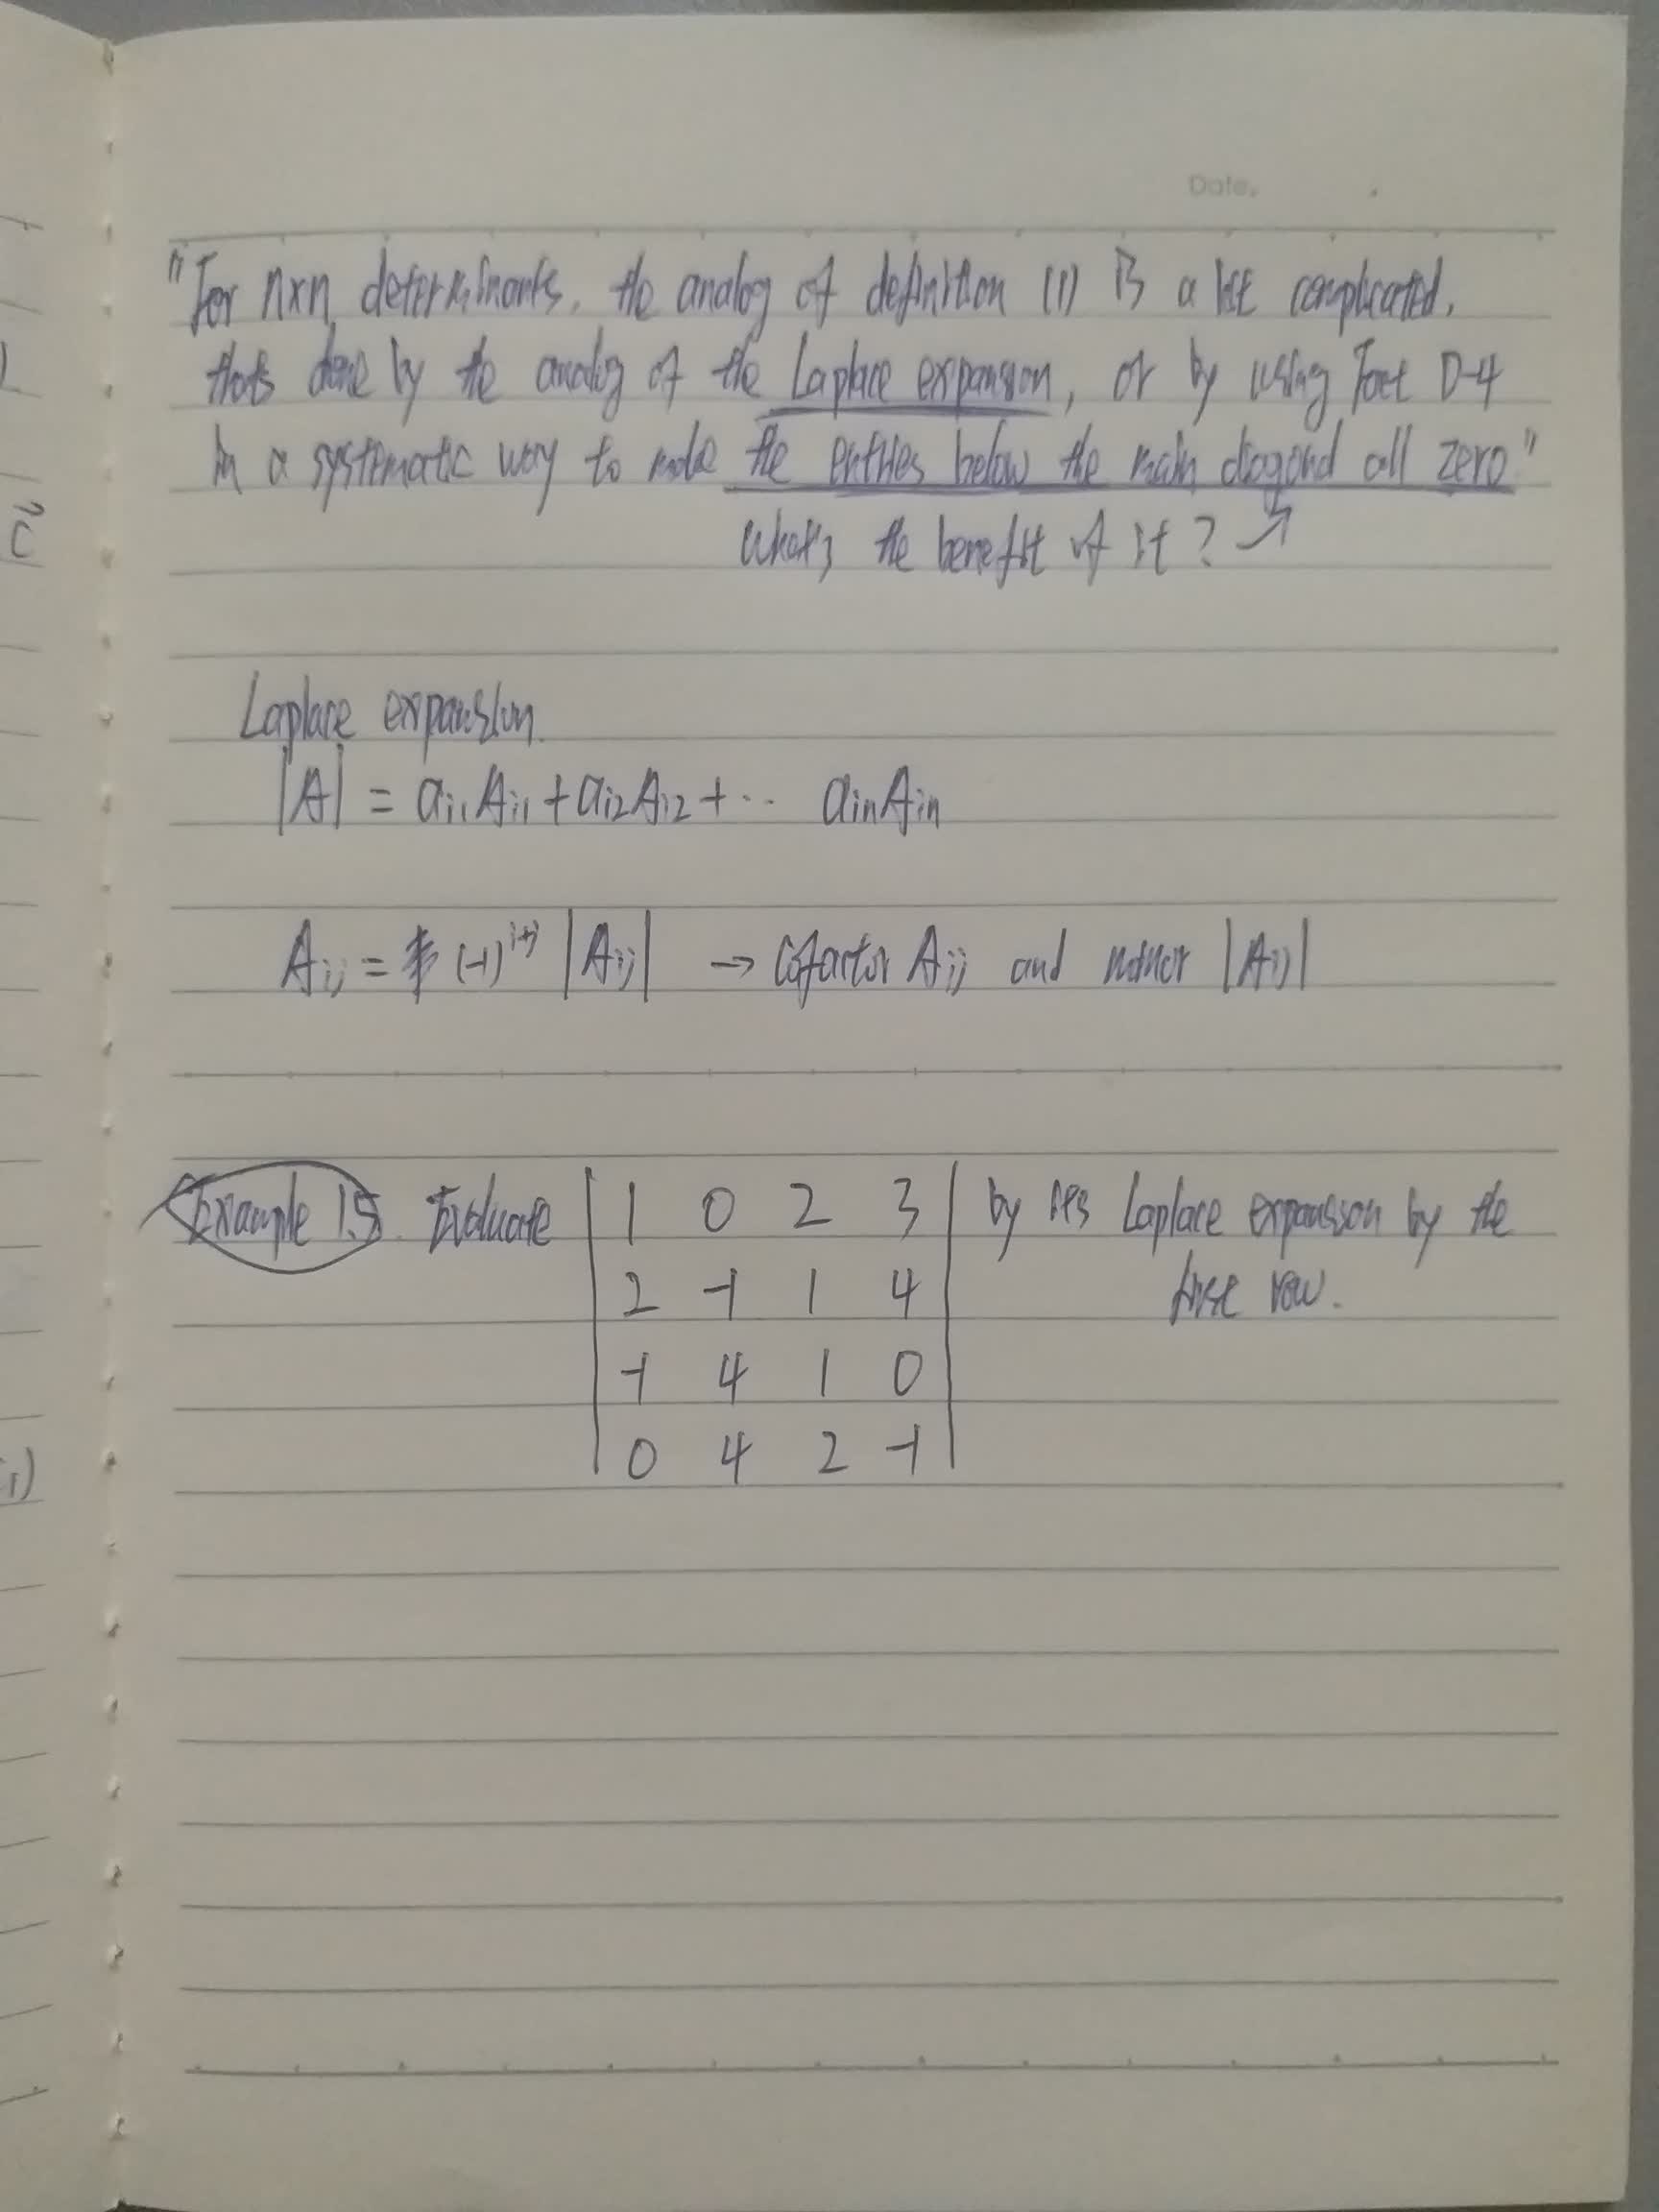 Date.
"For nxn determinants, the analog of definition (1) is a bit complicated,
that's done by the analog of the Laplace expansion, or by using Fact D-4
in a systematic way to make the entries below the main diagonal all zero"
what's the benefit of it?
Laplace expansion.
|A| = ai1Ai1 + ai2Ai2 + ... ainAin
Aij = (-1)^i+j |Aij| → Cofactor Aij and minor |Aij|
Example 1.5. Evaluate | 1 0 2 3 | by its Laplace expansion by the
2 -1 1 4 first row.
-1 4 1 0
0 4 2 -1